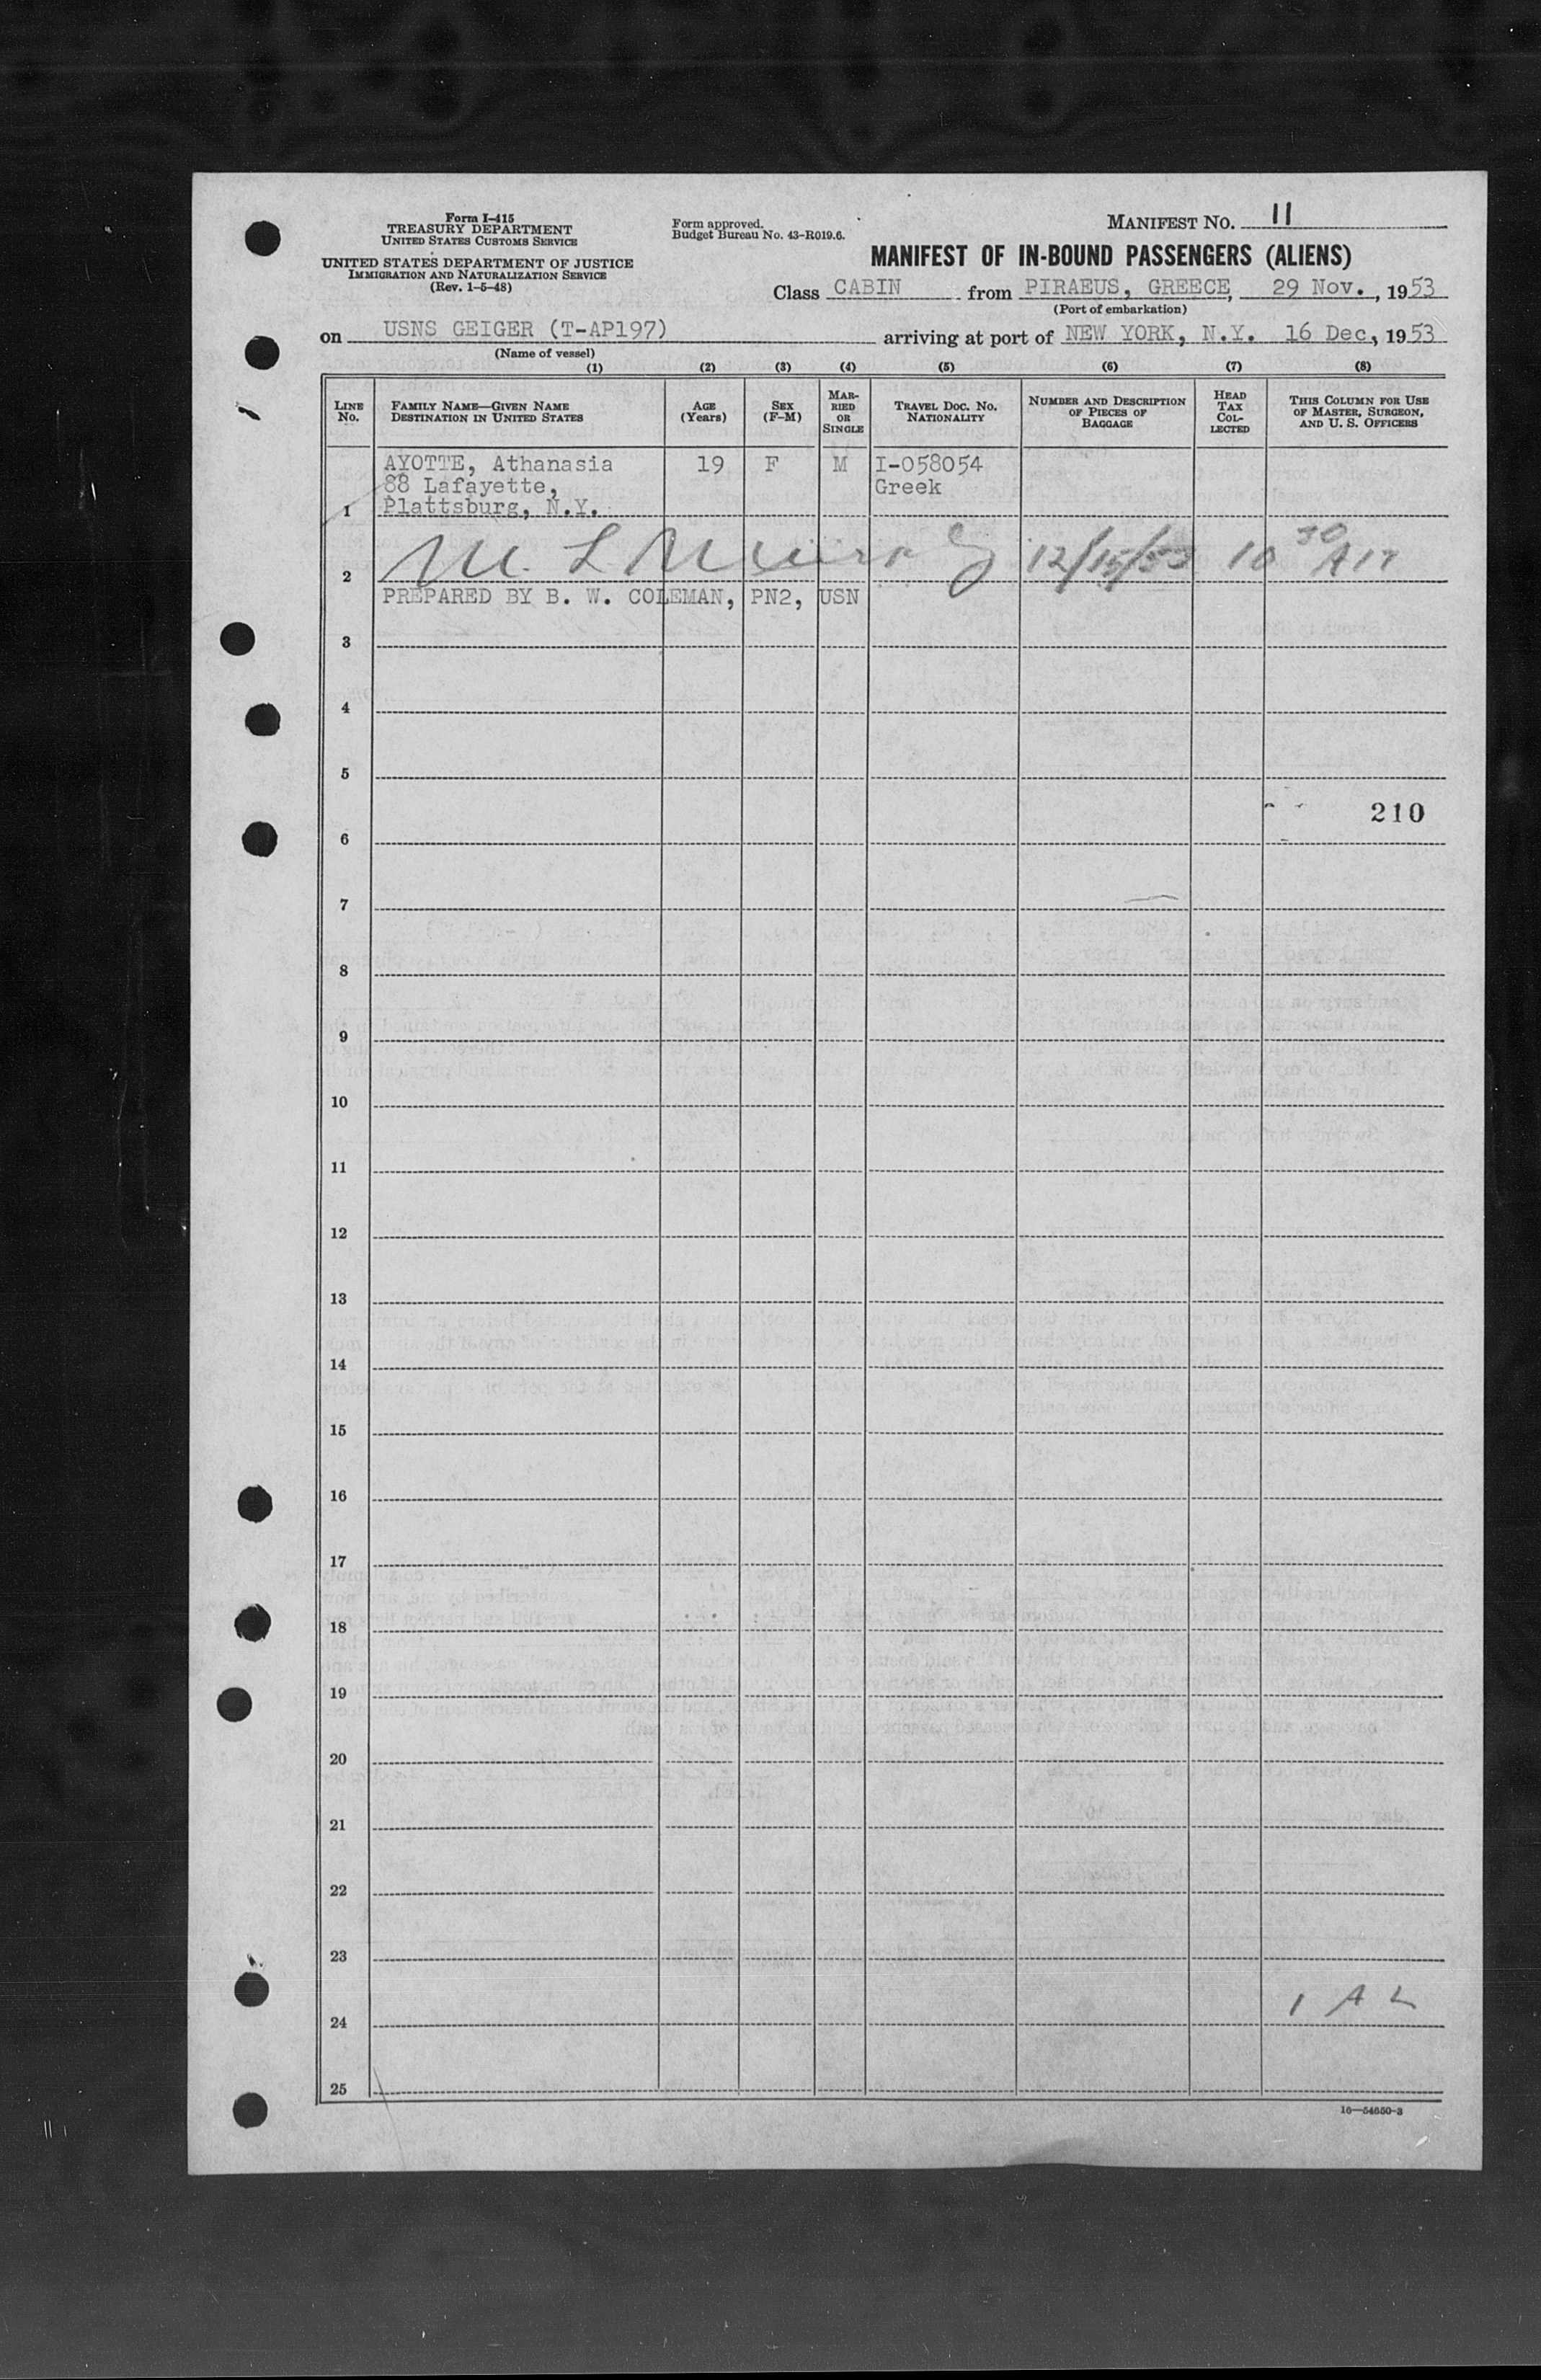 Form I-415
TREASURY DEPARTMENT
UNITED STATES CUSTOMS SERVICE
UNITED STATES DEPARTMENT OF JUSTICE
IMMIGRATION AND NATURALIZATION SERVICE
(Rev. 1-5-48)
Form approved.
Budget Bureau No. 43-R019.6.
MANIFEST NO. 11
MANIFEST OF IN-BOUND PASSENGERS (ALIENS)
Class CABIN from PIRAEUS, GREECE, 29 Nov., 1953
(Port of embarkation)
on USNS GEIGER (T-AP197) arriving at port of NEW YORK, N.Y. 16 Dec, 1953
(Name of vessel)
(1) (2) (3) (4) (5) (6) (7) (8)
LINE No.
FAMILY NAME—GIVEN NAME
DESTINATION IN UNITED STATES
AGE (Years)
SEX (F-M)
MARRIED OR SINGLE
TRAVEL DOC. NO. NATIONALITY
NUMBER AND DESCRIPTION OF PIECES OF BAGGAGE
HEAD TAX COLLECTED
THIS COLUMN FOR USE OF MASTER, SURGEON, AND U. S. OFFICERS
AYOTTE, Athanasia 19 F M I-058054
88 Lafayette, Greek
1 Plattsburg, N.Y.
2 M. L. 12/15/53 10 30 AM
PREPARED BY B. W. COLEMAN, PN2, USN
3
4
5
210
6
7
8
9
10
11
12
13
14
15
16
17
18
19
20
21
22
23
1 A L
24
25
16—54650-3